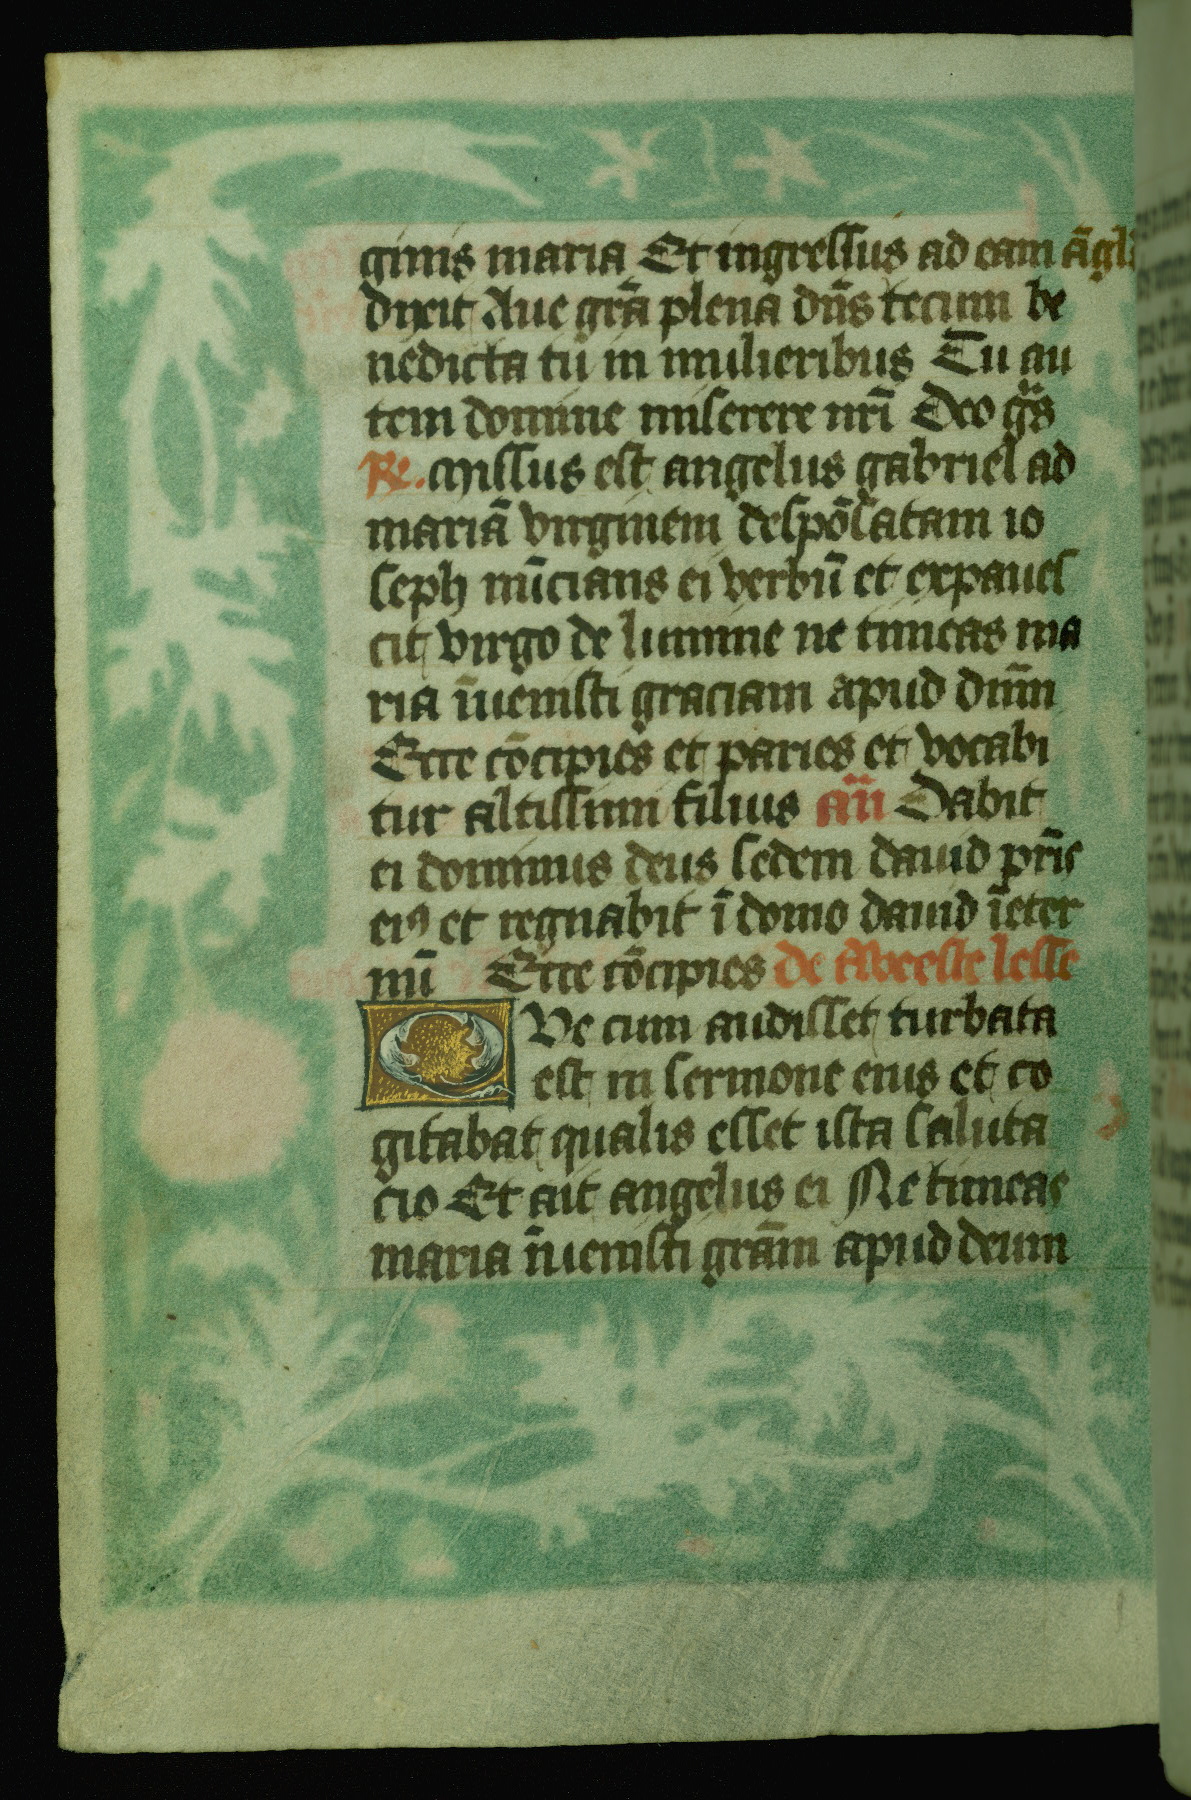 ginis maria Et ingressus ad eam āgl̄s
dixit Aue gr̄a plena dn̄s tecum be
nedicta tu in mulieribus Tu au
tem domine miserere nr̄i Deo gr̄s
R. missus est angelus gabriel ad
mariā virginem despōsatam io
seph nūcians ei verbū et expaues
cit virgo de lumine ne timeas ma
ria īuenisti graciam apud dn̄m
Ecce cōcipies et paries et vocabi
tur altissimi filius an̄ Dabit
ei dominus deus sedem dauid pr̄is
eiꝰ et regnabit ī domo dauid īeter
nū Ecce cōcipies de tweeste lesse
Qve cum audisset turbata
est in sermone eius et co
gitabat qualis esset ista saluta
cio Et ait angelus ei Ne timeas
maria īuenisti grām apud deum